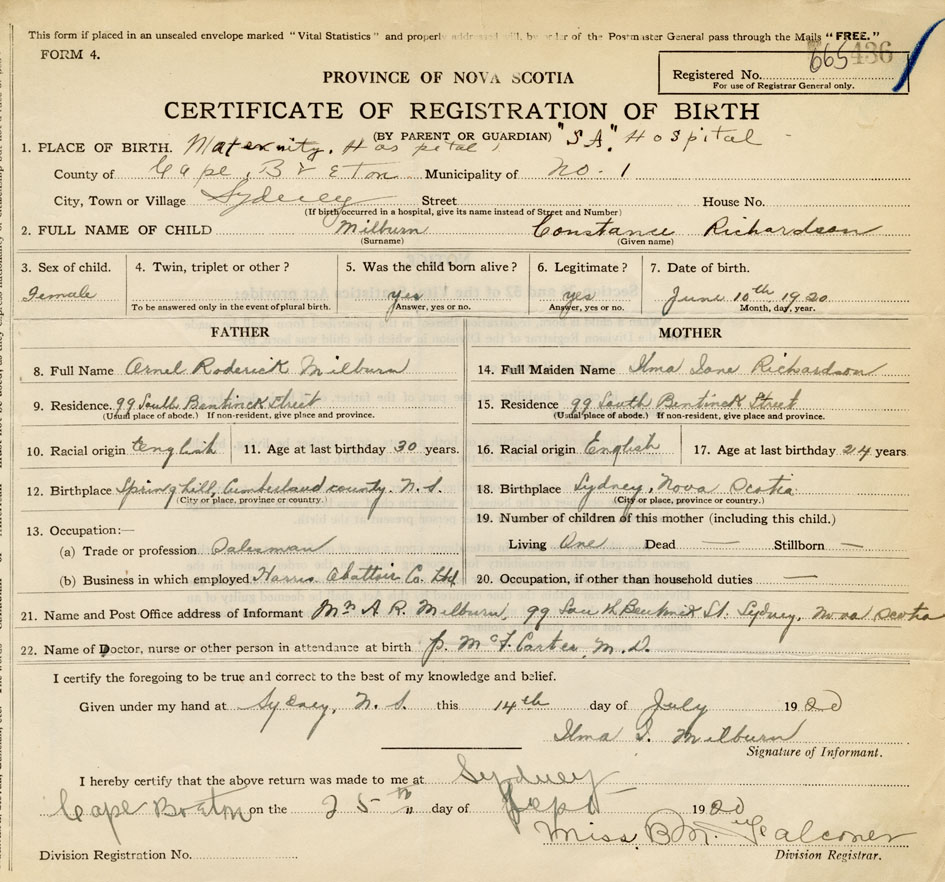 This form if placed in an unsealed envelope marked "Vital Statistics" and properly addressed will, by order of the Postmaster General pass through the Mails "FREE."
FORM 4.
665 436
Registered No.
For use of Registrar General only.
PROVINCE OF NOVA SCOTIA
CERTIFICATE OF REGISTRATION OF BIRTH
(BY PARENT OR GUARDIAN) "S.A." Hospital
1. PLACE OF BIRTH. Maternity. Hospital,
County of Cape. Breton Municipality of No. 1
City, Town or Village Sydney Street House No.
(If birth occurred in a hospital, give its name instead of Street and Number)
2. FULL NAME OF CHILD Milburn Constance Richardson
(Surname) (Given name)
3. Sex of child. 4. Twin, triplet or other? 5. Was the child born alive? 6. Legitimate? 7. Date of birth.
Female yes yes June 10th 1920
To be answered only in the event of plural birth. Answer, yes or no. Answer, yes or no. Month, day, year.
FATHER
8. Full Name Roderick Milburn
9. Residence. 99 South Bentinck Street
(Usual place of abode.) If non-resident, give place and province.
10. Racial origin English 11. Age at last birthday 30 years.
12. Birthplace Springhill, Cumberland county. N.S.
(City or place, province or country.)
13. Occupation:—
(a) Trade or profession Salesman
(b) Business in which employed Harris Abattoir Co. Ltd
MOTHER
14. Full Maiden Name Ilma Richardson
15. Residence 99 South Bentinck Street
(Usual place of abode.) If non-resident, give place and province.
16. Racial origin English 17. Age at last birthday 24 years
18. Birthplace Sydney, Nova Scotia
(City or place, province or country.)
19. Number of children of this mother (including this child.)
Living One Dead — Stillborn —
20. Occupation, if other than household duties —
21. Name and Post Office address of Informant Mrs A R. Milburn, 99 South Bentinck St. Sydney, Nova Scotia
22. Name of Doctor, nurse or other person in attendance at birth M.D.
I certify the foregoing to be true and correct to the best of my knowledge and belief.
Given under my hand at Sydney, N.S. this 14th day of July 1920
Ilma J. Milburn
Signature of Informant.
I hereby certify that the above return was made to me at Sydney
Cape Breton on the 25th day of Sept 1920
Miss. B. M. Falconer
Division Registration No. Division Registrar.